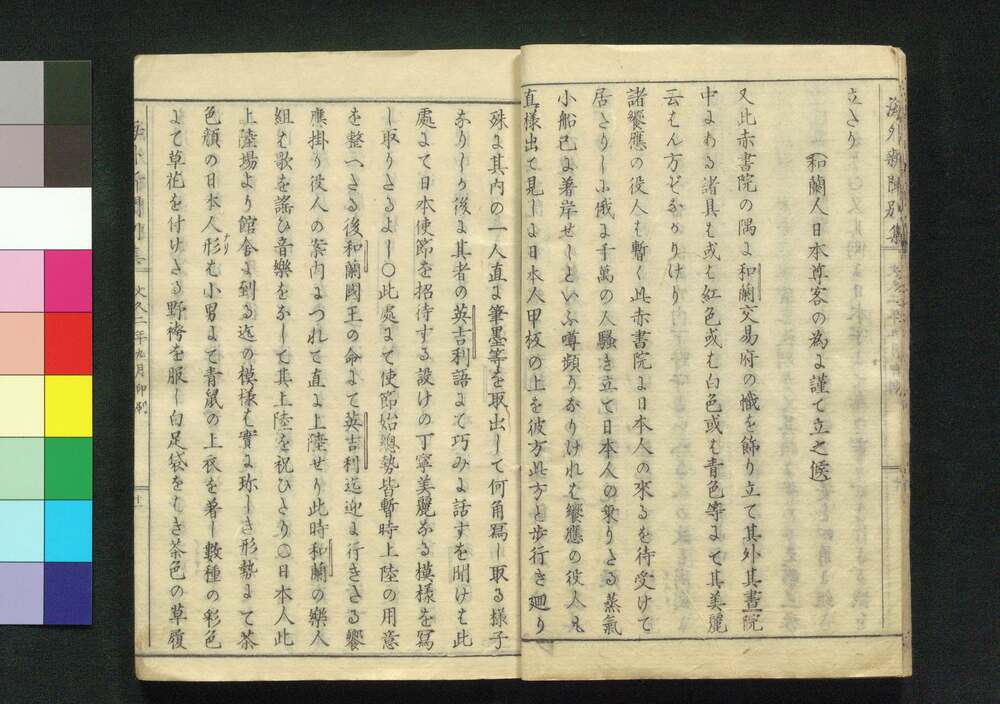 海外新聞別集
立さり
(和蘭人日本尊客の為に謹て立之候
又此赤書院の隅に和蘭交易府の幟を飾り立て其外其書院
中にある諸具も或も紅色或も白色或も青色等にて其美麗
云はん方どなかりけり
諸饗應の役人も暫く此赤書院に日本人の來るを待受けて
居さりしに俄に千萬の人騒き立て日本人の乗りさる蒸氣
小船已に着岸せしといふ噂頻りなりけれも饗應の役人も
直様出て見しに日本人甲板の上を彼方此方と歩行き廻り
殊に其内の一人直に筆墨等を取出して何角冩し取る様子
なりしか後に其者の英吉利語にて巧みに話すを聞けも此
處にて日本使節を招待する設けの丁寧美麗なる模樣を冩
し取りさるよし〇此處にて使節始總勢皆暫時上陸の用意
を整へさる後和蘭國王の命にて英吉利迄迎に行きさる饗
應掛り役人の案内につれて直に上陸せり此時和蘭の樂人
組も歌を謠ひ音樂をなして其上陸を祝ひさり〇日本人此
上陸場より館舎に到る迄の模樣も實に珎しき形勢にて茶
色顔の日本人形ナリも小男にて青鼠の上衣を着し數種の彩色
にて草花を付けさる野袴を服し白足袋をはき茶色の草履
文久二年九月御刷
十一